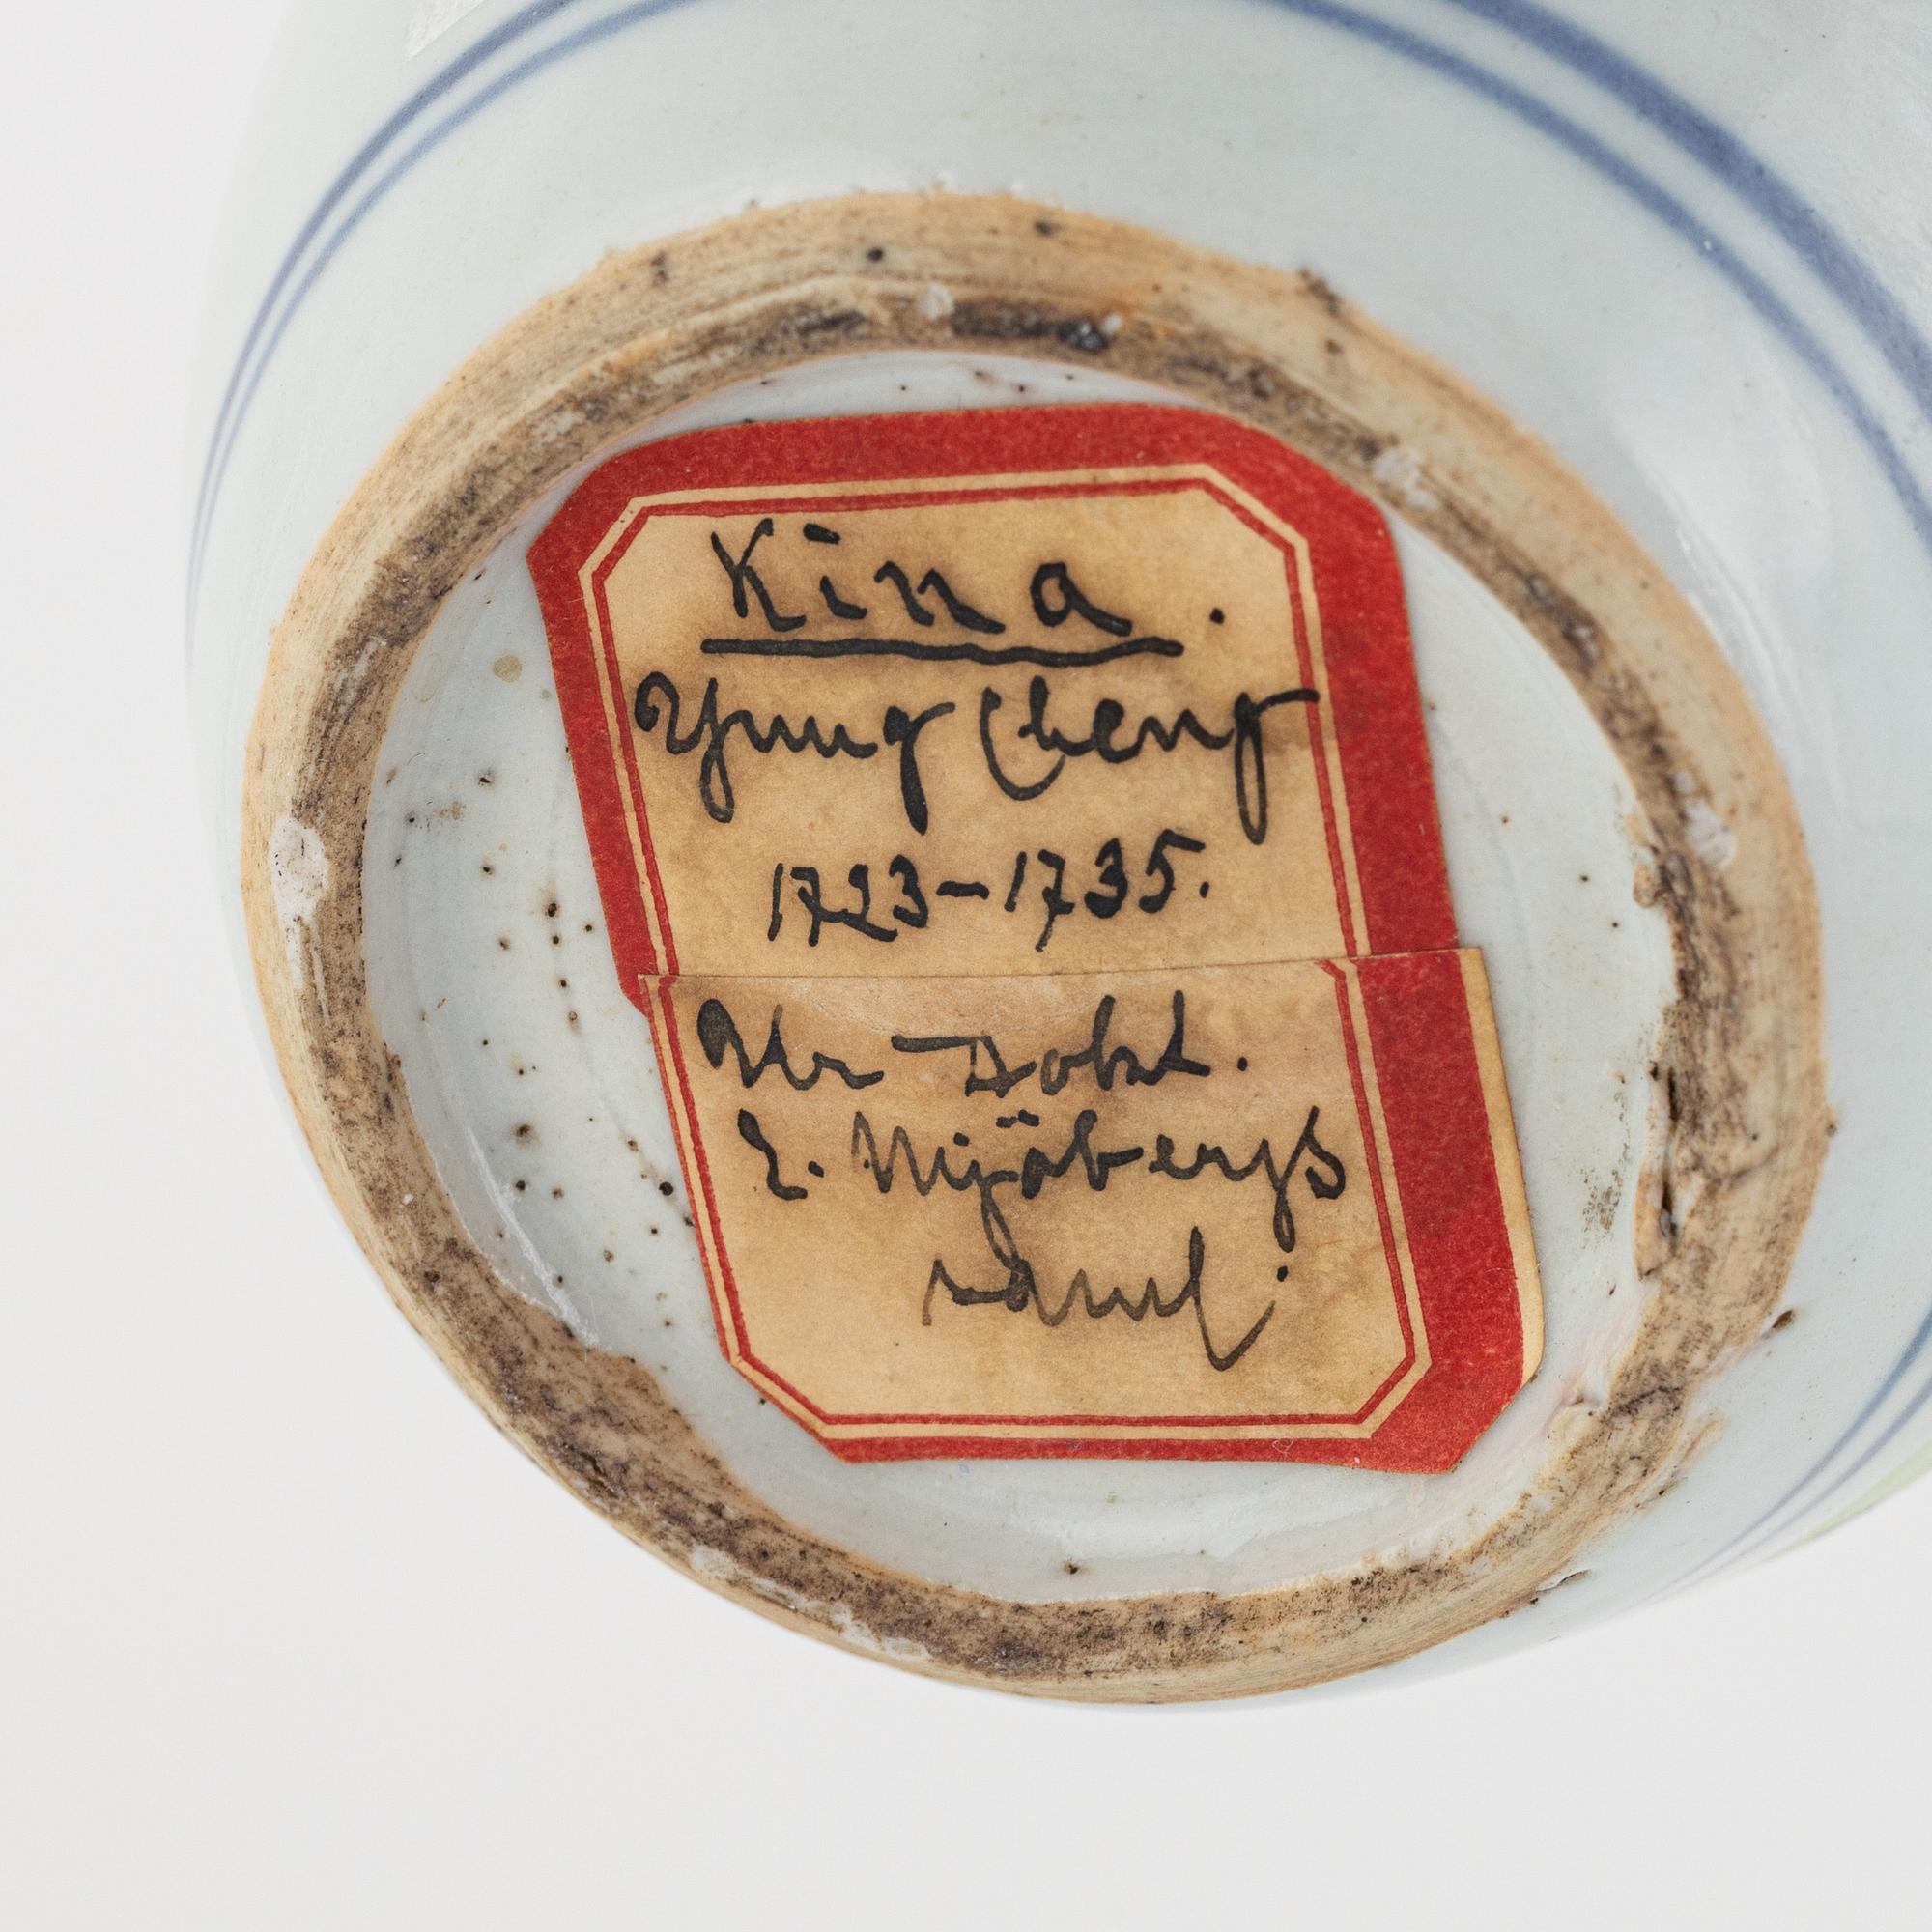 Kina.
Yung Cheng
1723–1735.
Ur Dokt.
E. Mjöbergs
saml.